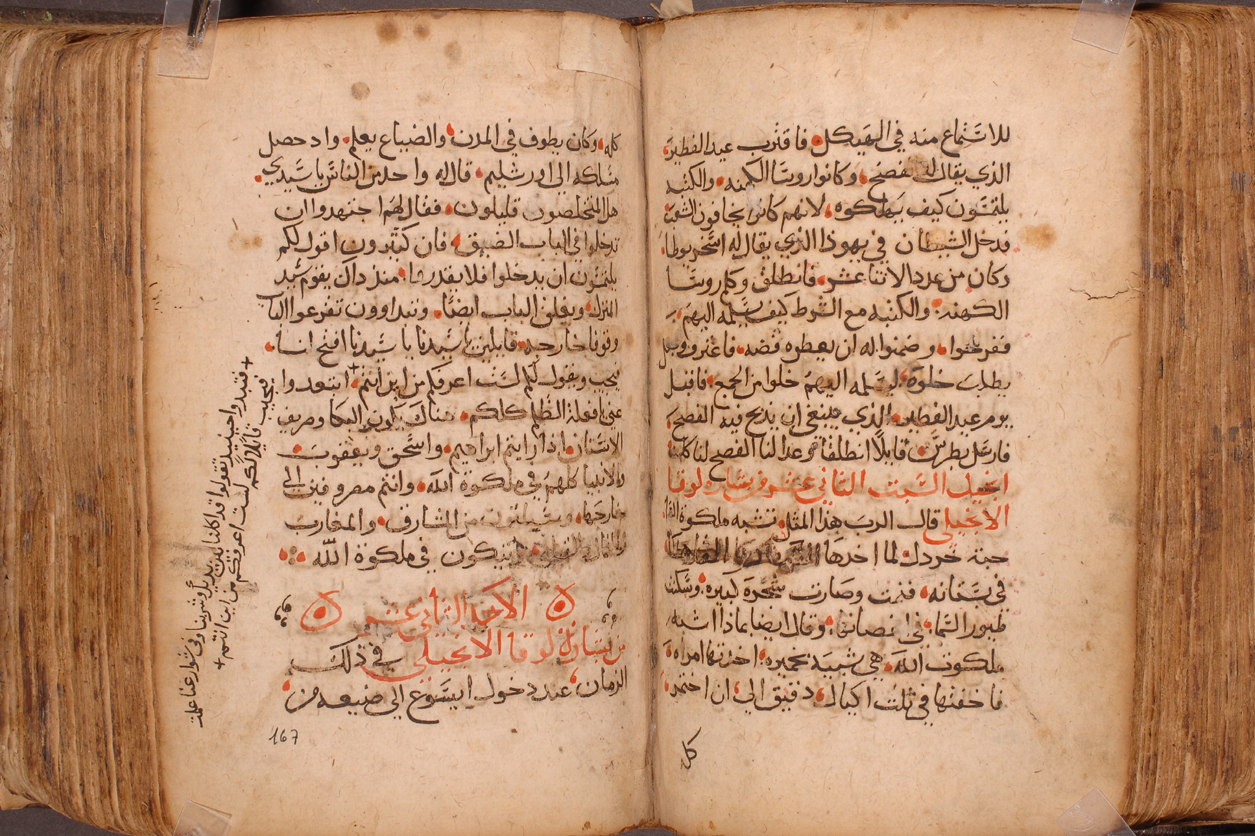 للاستماع منه في الهيكل فاقترب عيد الفطير
الذي يقال له فصح وكانوا روسا الكهنه والكتبه
يلتمسون كيف يهلكوه لانهم كانوا يخافون الشعب
فدخل الشيطان في يهوذا الذي يقال له اسخريوطا
وكان من عدد الاثنا عشر فانطلق وكلم روسا
الكهنه والكتبه مع الشرط كيف يسلمه اليهم
ففرحوا وضمنوا له ان يعطوه فضه فاعترف وجعل
يطلب خلوة ليسلمه اليهم خلوا من الجمع فاقبل
يوم عيد الفطير الذي ينبغي ان يذبح فيه الفصح
فارسل بطرس قايلا انطلقا وعدا لنا الفصح لناكلنه
انجيل السبت الثاني عشر من بشارة لوقا
الانجيلي قال الرب هذا المثل تشبه ملكوة الله
حبة خردل لما اخدها
في بستانه فنمت وصارت شجرة كبيره وسكنت
طيور السما في اغصانها وقال ايضا بماذا اشبه
ملكوت الله هي شبيهة بخميره اخذتها امراه
فاخفتها في ثلت اكيال دقيق الى ان اختمر
كل
كله وكان يطوف في المدن والضياع يعلم واد حصل
مسلكه الى اورشليم قال له واحد من الناس يا سيدي
هل المتخلصون قليلون فقال لهم اجتهدوا ان
تدخلوا في الباب الضيق فان كثيرون اقول لكم
يلتمسون ان يدخلوا فلا يقدرون منذ داك يقوم سيد
المنزل ويغلق الباب ايضا وتبتداوون تقرعوا الباب
وقوفا خارجه قايلين يا سيدنا يا سيدنا افتح لنا
فيجيب ويقول لكم لست اعرفكم من اين انتم ابتعدوا
عني يا فعلة الظلم كلكم هناك يكون البكا وصريف
الاسنان اذا رايتم ابراهيم واسحق ويعقوب
والانبيا كلهم في ملكوة الله وانتم مصروفين الى
خارجها وسياتون من المشارق والمغارب
ويتكون في ملكوة الله
الاحد الثاني عشر
من بشارة لوقا الانجيلي في ذلك
الزمان عند دخول ايسوع الى ضيعه من
167
فتبدوا حينيد تقولوا قد اكلنا بين يديك وشربنا وفي شوارعنا علمت
فيجيب قايلا لكم لست اعرفكم من اين انتم